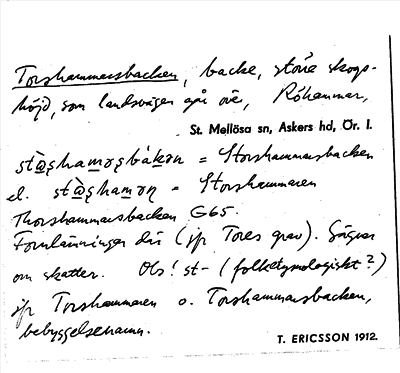 Torshammarsbacken, backe, större skogs-
höjd, som landsvägen går öve, Röhammar,
St. Mellösa sn, Askers hd, Ör. l.
= Storshammarsbacken
el. = Storshammaren
Thorshammarsbacken G65.
Fornlämningar där (jfr Tores grav). Sägner
om skatter. Obs! st- (folketymologiskt?)
jfr Torshammaren o. Torshammarsbacken,
bebyggelsenamn.
T. ERICSSON 1912.